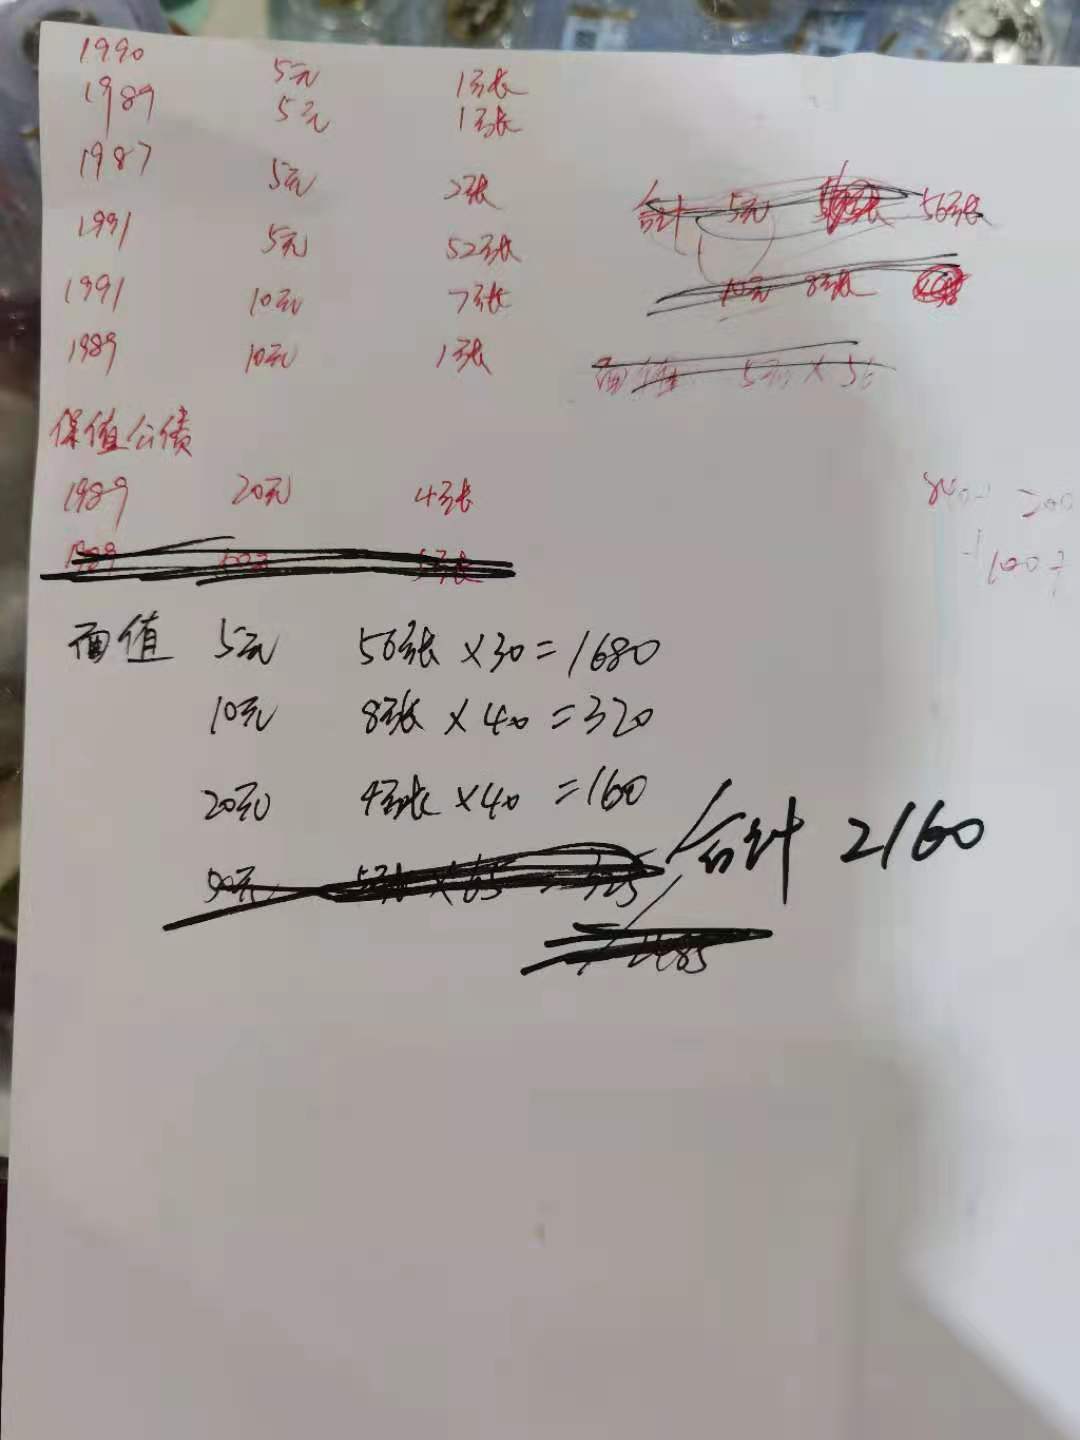 1990 5元 1张
1989 5元 1张
1987 5元 2张
1991 5元 52张
1991 10元 7张
1989 10元 1张
合计 5元 56张
10元 8张
面值 5元×56
保值公债
1989 20元 4张
1989 50元 5张
面值 5元 56张×30=1680
10元 8张×40=320
20元 4张×40=160
合计 2160
50元 5张×65=325
2485